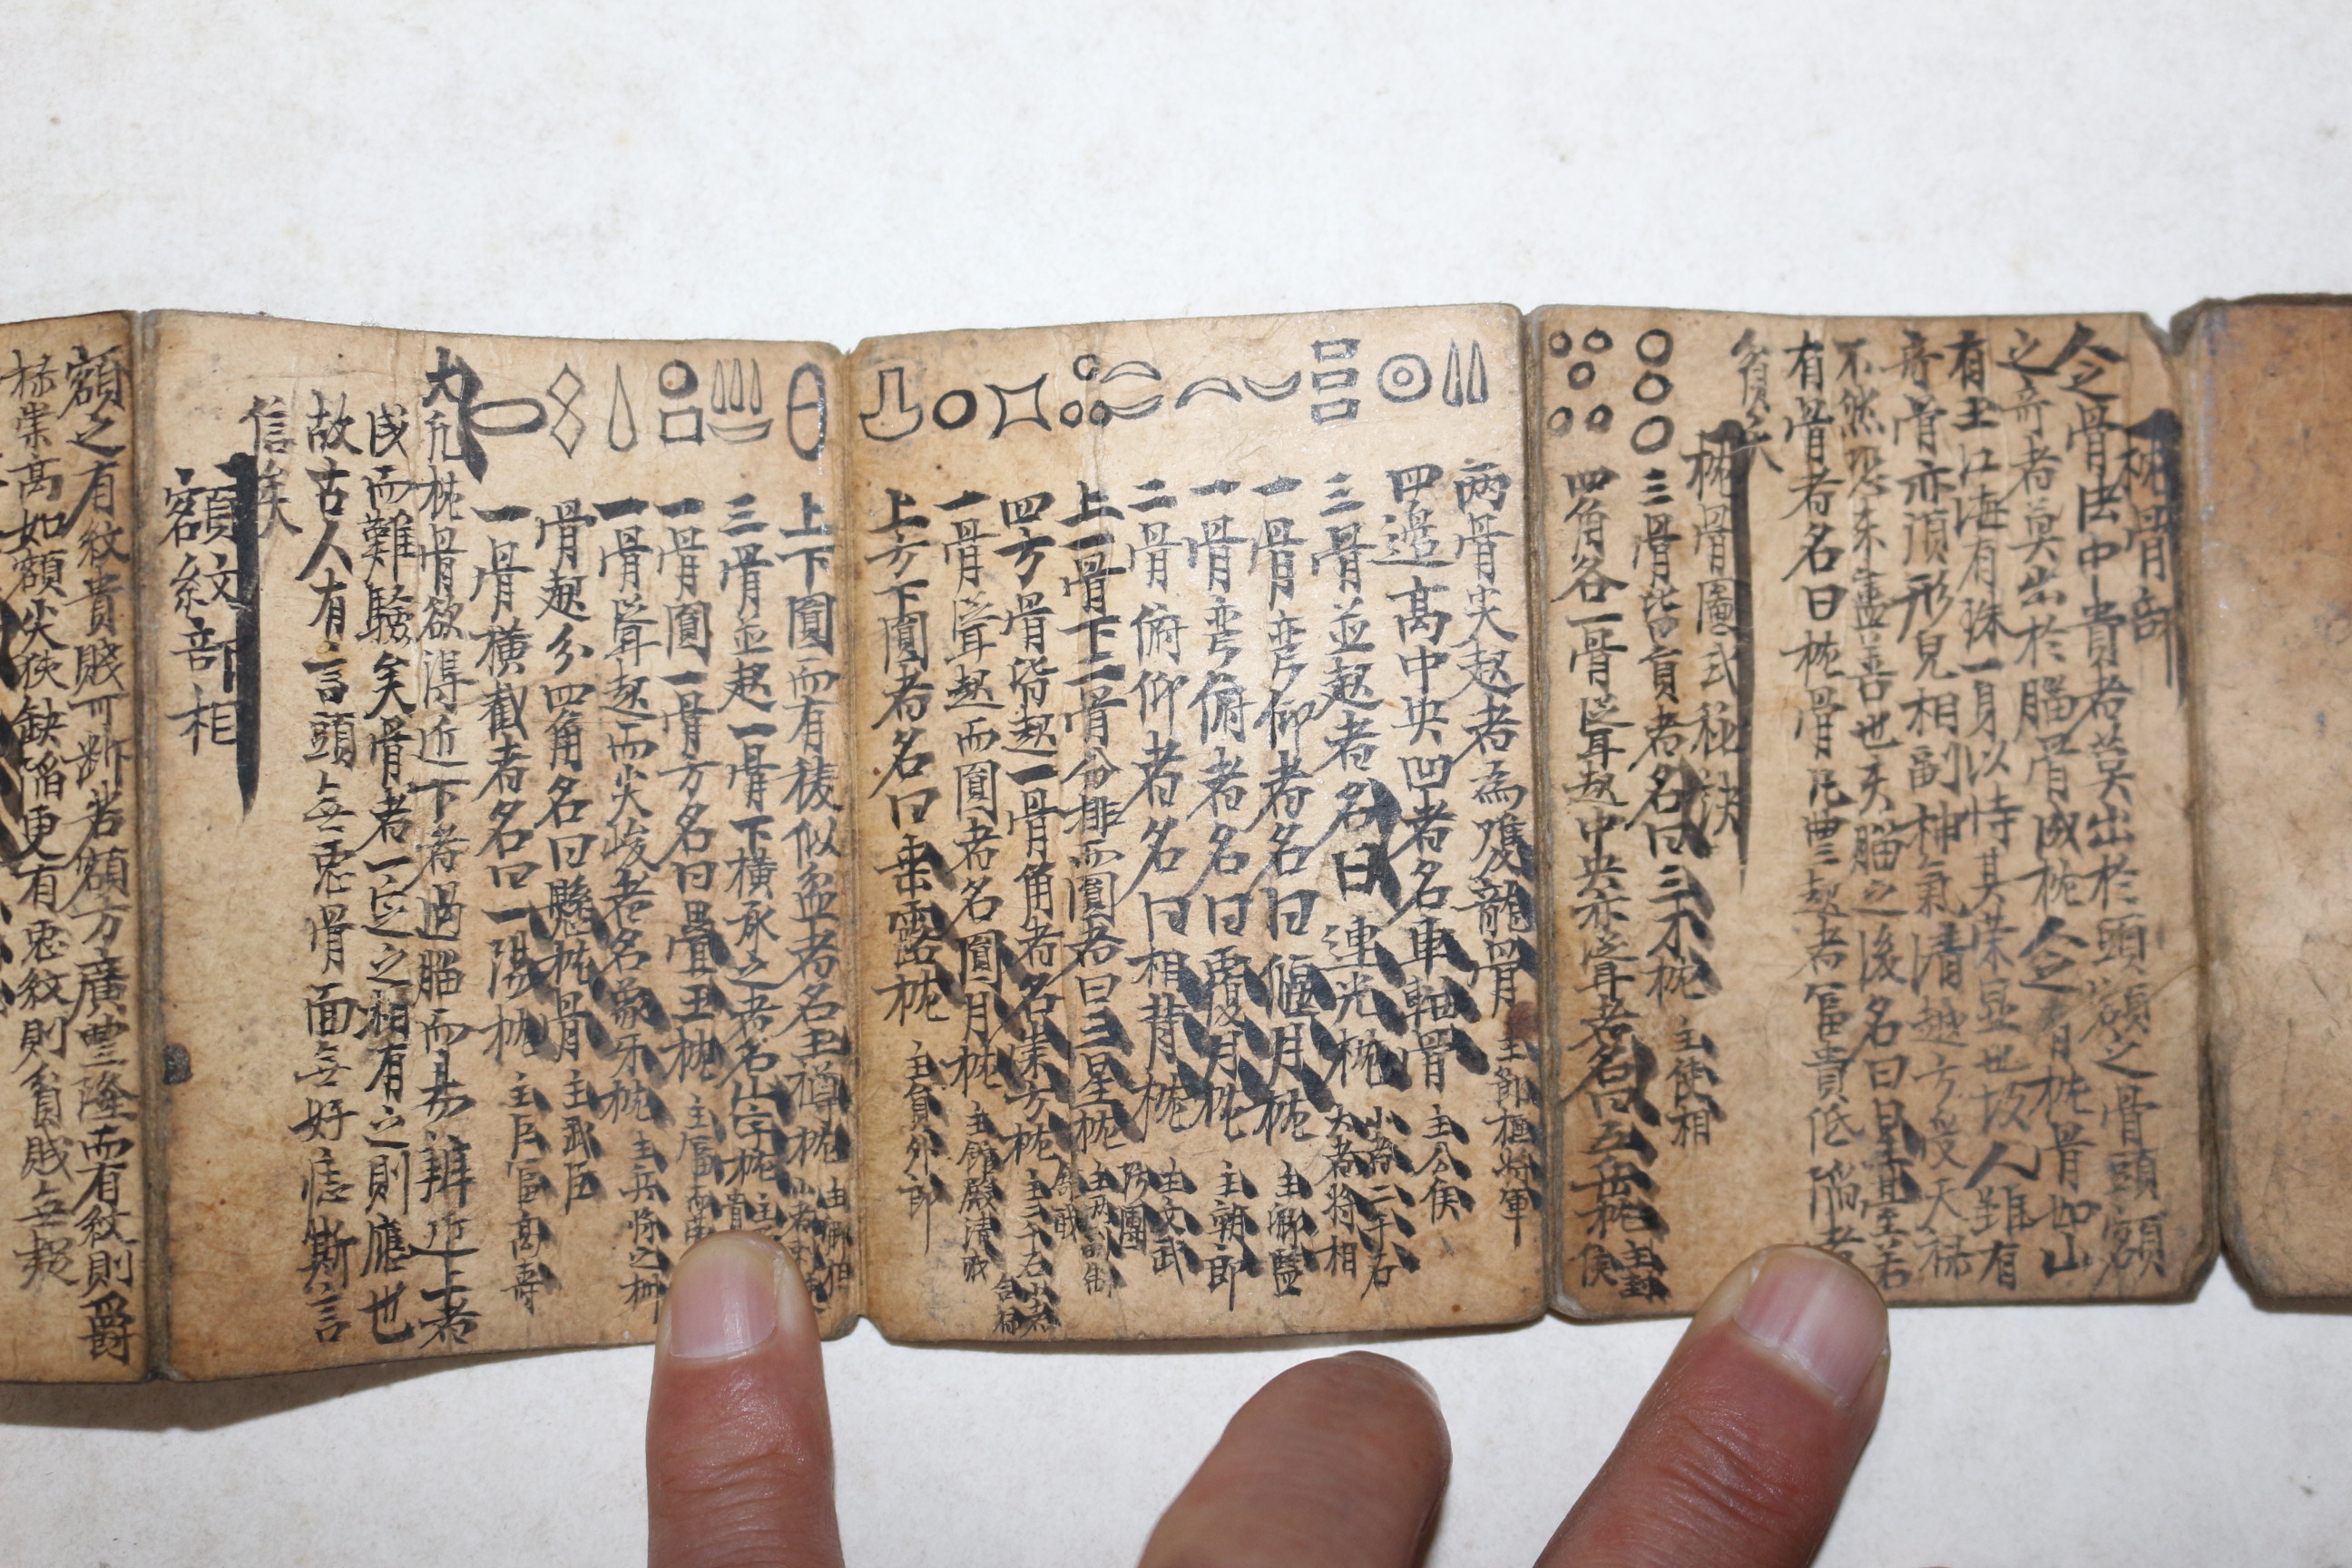 枕骨部
今骨法中貴者莫出於頭額之骨頭額
之竒者莫出於腦骨成枕今有枕骨如山
有玉江海有珠一身以恃其荣显也故人雖有
竒骨亦須形皃相副神氣清越方受天禄
不然恐未盡善也夫腦之後名曰星䑓若
有骨者名曰枕骨凢豊起者富貴低陷者
貧
枕骨圖式秘訣
三骨皆負者名曰三才枕 主使相
四角各一骨聳起中央亦聳者名曰五岳枕 主封侯
兩骨尖起者為雙龍骨 主節樞将軍
四邉髙中央凹者名車軸骨 主公侯
三骨並起者名曰連光枕 小者二千石大者将相
一骨弯仰者名曰偃月枕 主卿監
一骨弯俯者名曰覆月枕 主朝郎
二骨俯仰者名曰相背枕 主文武防團
上一骨下二骨分排而圓者曰三星枕
四方骨皆起一骨角者名崇方枕 主二千石
一骨聳起而圓者名圓月枕 主舘殿清
上方下圓者名曰垂露枕 主負外郎
上下圓而有稜似盃者名玉樽枕
三骨並起一骨下橫承之者名山字枕
一骨圓一骨方名曰疊玉枕 主富
一骨聳起而尖峻者名象牙枕 主兵将之
骨起分四角名曰懸枕骨 主武臣
一骨橫截者名曰一陽枕 主巨富髙壽
凢枕骨欲得近下者過腦而易辨近上者
成而難驗矣骨者一定之相有之則應也
故古人有言頭無惡骨面無好痣斯言
信矣
額紋部相
額之有紋貴賤可断若額方廣豊隆而有紋則爵
禄崇髙如額尖狹缺陷更有惡紋則貧賤無